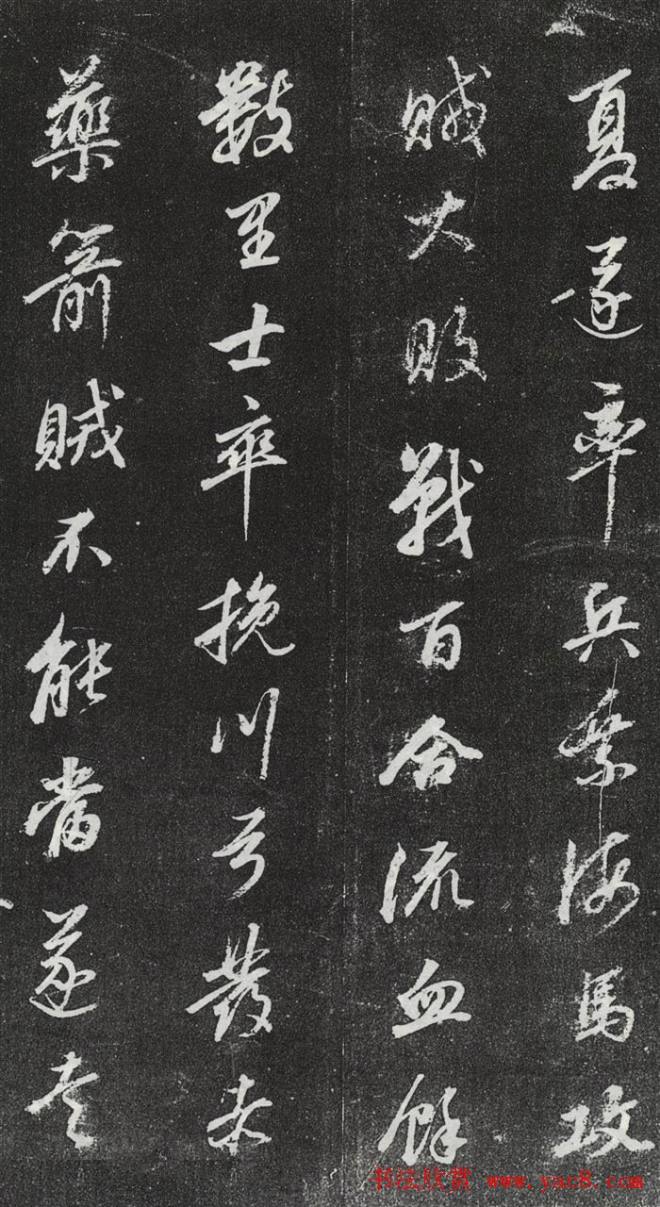 夏遂率兵乘海馬攻
賊大敗戰百合流血餘
數里士卒挽川弓發
藥箭賊不能當遂走
书法欣赏 www.yac8.com